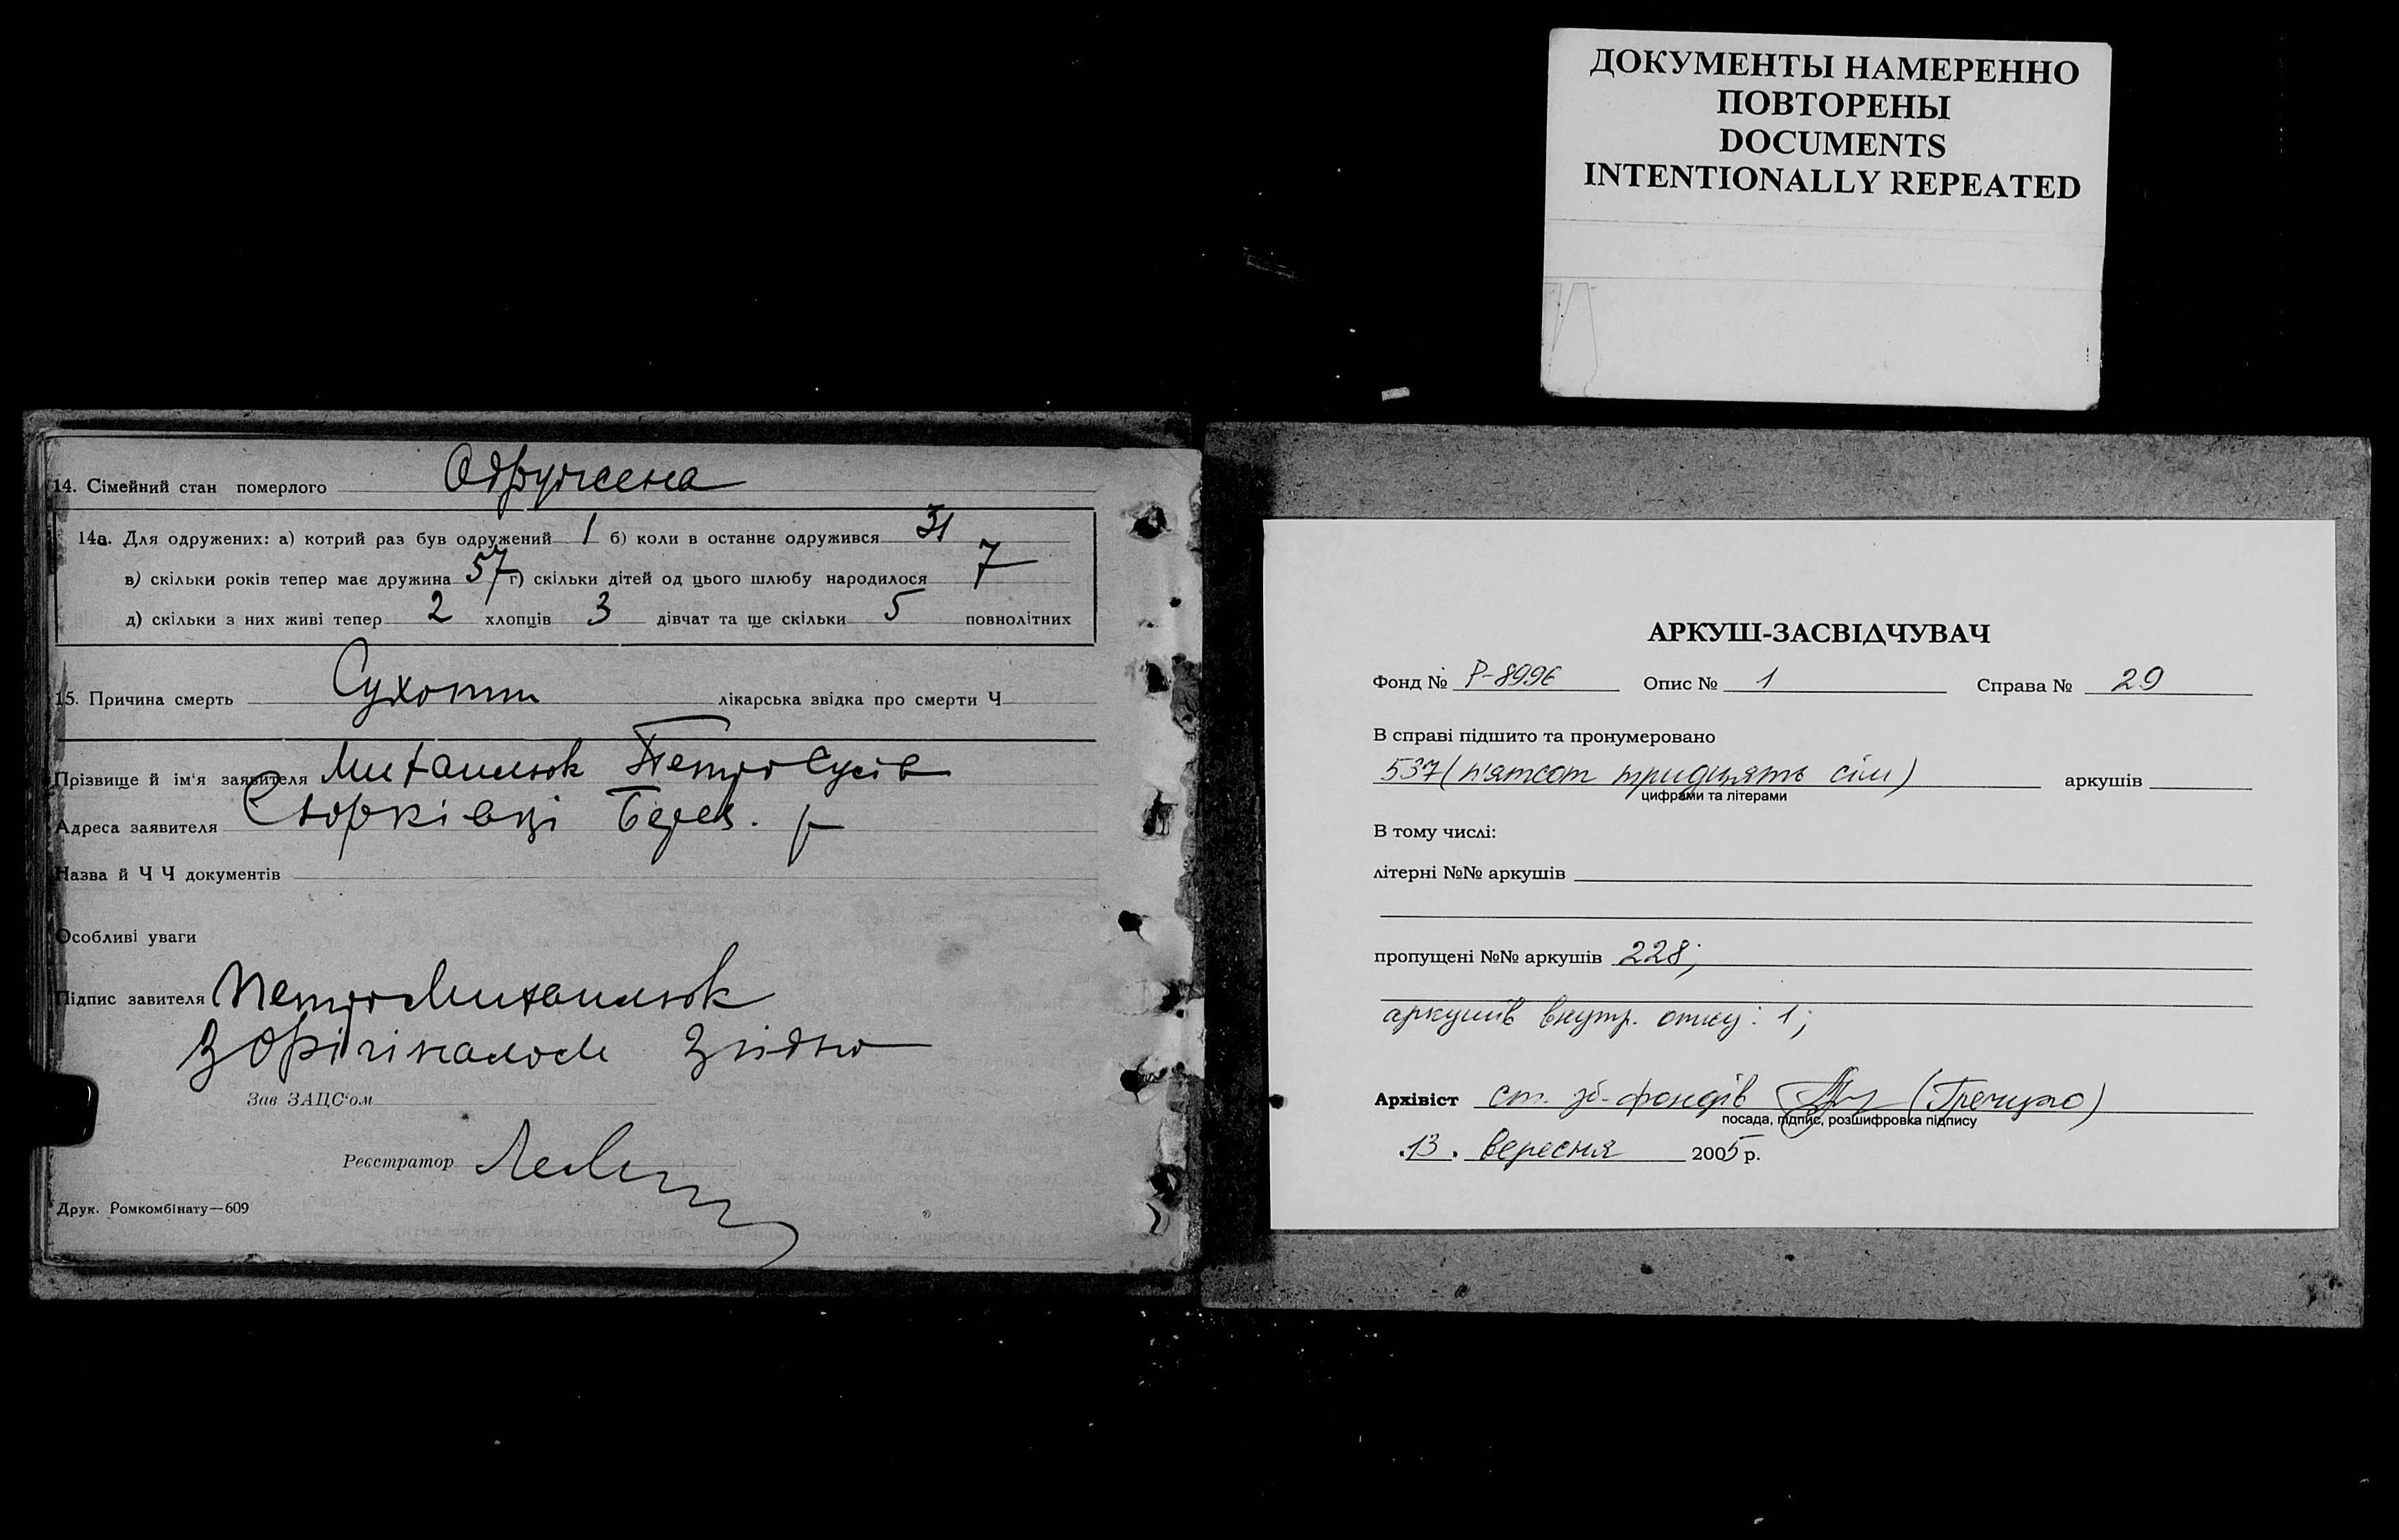 ДОКУМЕНТЫ НАМЕРЕННО
ПОВТОРЕНЫ
DOCUMENTS
INTENTIONALLY REPEATED
14. Сімейний стан померлого Одружена
14а. Для одружених: а) котрий раз був одружений 1 б) коли в останнє одружився 31
в) скільки років тепер має дружина 57 г) скільки дітей од цього шлюбу народилося 7
д) скільки з них живі тепер 2 хлопців 3 дівчат та ще скільки 5 повнолітних
15. Причина смерть Сухоти лікарська звідка про смерти Ч
Прізвище й ім'я заявителя Михайлюк Петро
Адреса заявителя Сюрківці Берез. р
Назва й Ч Ч документів
Особливі уваги
Підпис завителя Петро Михайлюк
З оригіналом Згідно
Зав ЗАЦС'ом
Реєстратор
Друк. Ромкомбінату—609
АРКУШ-ЗАСВІДЧУВАЧ
Фонд № Р-8996 Опис № 1 Справа № 29
В справі підшито та пронумеровано
537 (п'ятсот тридцять сім) аркушів
цифрами та літерами
В тому числі:
літерні №№ аркушів
пропущені №№ аркушів 228;
аркушів внутр. опису: 1;
Архівіст ст. зб. фондів (Гречухо)
посада, підпис, розшифровка підпису
"13" вересня 2005 р.